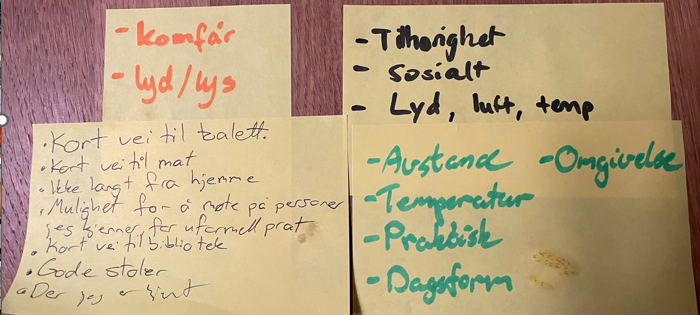 - komfår
- lyd/lys
- Tilhorighet
- sosialt
- Lyd, luft, temp
• Kort vei til toalett.
• Kort vei til mat
• Ikke langt fra hjemme
• Mulighet for å møte på personer
jeg kjenner, for uformell prat
• Kort vei til bibliotek
• Gode stoler
• Der jeg er
- Avstand - Omgivelse
- Temperatur
- Praktisk
- Dagsform